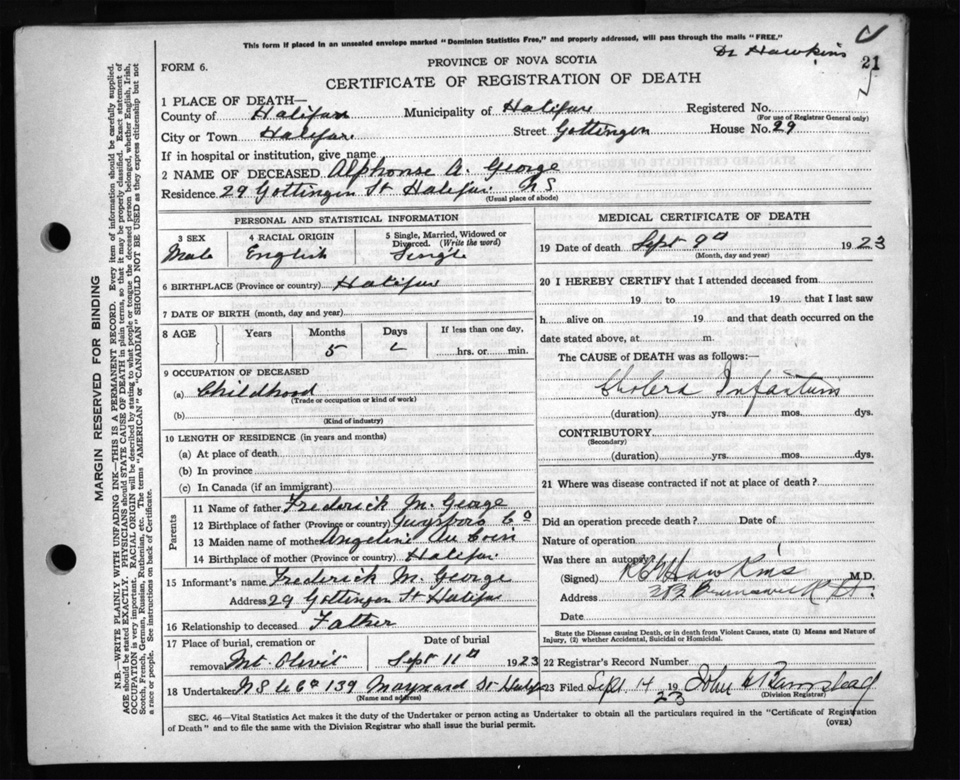 This form if placed in an unsealed envelope marked "Dominion Statistics Free," and properly addressed, will pass through the mails "FREE."
Dr Hawkins
21
FORM 6.
PROVINCE OF NOVA SCOTIA
CERTIFICATE OF REGISTRATION OF DEATH
1 PLACE OF DEATH—
County of Halifax Municipality of Halifax Registered No.
(For use of Registrar General only)
City or Town Halifax Street Gottingen House No. 29
If in hospital or institution, give name
2 NAME OF DECEASED Alphonse A. George
Residence 29 Gottingen St Halifax NS
(Usual place of abode)
PERSONAL AND STATISTICAL INFORMATION
3 SEX 4 RACIAL ORIGIN 5 Single, Married, Widowed or Divorced. (Write the word)
Male English Single
6 BIRTHPLACE (Province or country) Halifax
7 DATE OF BIRTH (month, day and year)
8 AGE Years Months Days If less than one day,
5 2 hrs. or min.
9 OCCUPATION OF DECEASED
(a) Childhood
(Trade or occupation or kind of work)
(b)
(Kind of industry)
10 LENGTH OF RESIDENCE (in years and months)
(a) At place of death
(b) In province
(c) In Canada (if an immigrant)
Parents
11 Name of father Frederick M. George
12 Birthplace of father (Province or country) Guysboro Co
13 Maiden name of mother Angeline Au Coin
14 Birthplace of mother (Province or country) Halifax
15 Informant's name Frederick M. George
Address 29 Gottingen St Halifax
16 Relationship to deceased Father
17 Place of burial, cremation or Date of burial
removal Mt. Olivit Sept 11th 1923
18 Undertaker N S U Co 139 Maynard St Halifax
(Name and address)
MEDICAL CERTIFICATE OF DEATH
19 Date of death Sept 9th 1923
(Month, day and year)
20 I HEREBY CERTIFY that I attended deceased from
19 to 19 that I last saw
h alive on 19 and that death occurred on the
date stated above, at m.
The CAUSE of DEATH was as follows:—
Cholera Infantum
(duration) yrs. mos. dys.
CONTRIBUTORY
(Secondary)
(duration) yrs. mos. dys.
21 Where was disease contracted if not at place of death?
Did an operation precede death? Date of
Nature of operation
Was there an autopsy?
(Signed) Hawkins M.D.
Address Brunswick St.
Date
State the Disease causing Death, or in death from Violent Causes, state (1) Means and Nature of Injury, (2) whether Accidental, Suicidal or Homicidal.
22 Registrar's Record Number
23 Filed Sept. 14 1923 John
(Division Registrar)
SEC. 46—Vital Statistics Act makes it the duty of the Undertaker or person acting as Undertaker to obtain all the particulars required in the "Certificate of Registration
of Death" and to file the same with the Division Registrar who shall issue the burial permit.
(OVER)
MARGIN RESERVED FOR BINDING
N.B.—WRITE PLAINLY WITH UNFADING INK—THIS IS A PERMANENT RECORD. Every item of information should be carefully supplied.
AGE should be stated EXACTLY. PHYSICIANS should STATE CAUSE OF DEATH in plain terms, so that it may be properly classified. Exact statement of
OCCUPATION is very important. RACIAL ORIGIN will be described by stating to what people or tongue the deceased person belonged, whether English, Irish,
Scotch, French, German, Russian, Ruthenian, etc. The terms "AMERICAN" or "CANADIAN" SHOULD NOT BE USED as they express citizenship but not
a race or people. See instructions on back of Certificate.